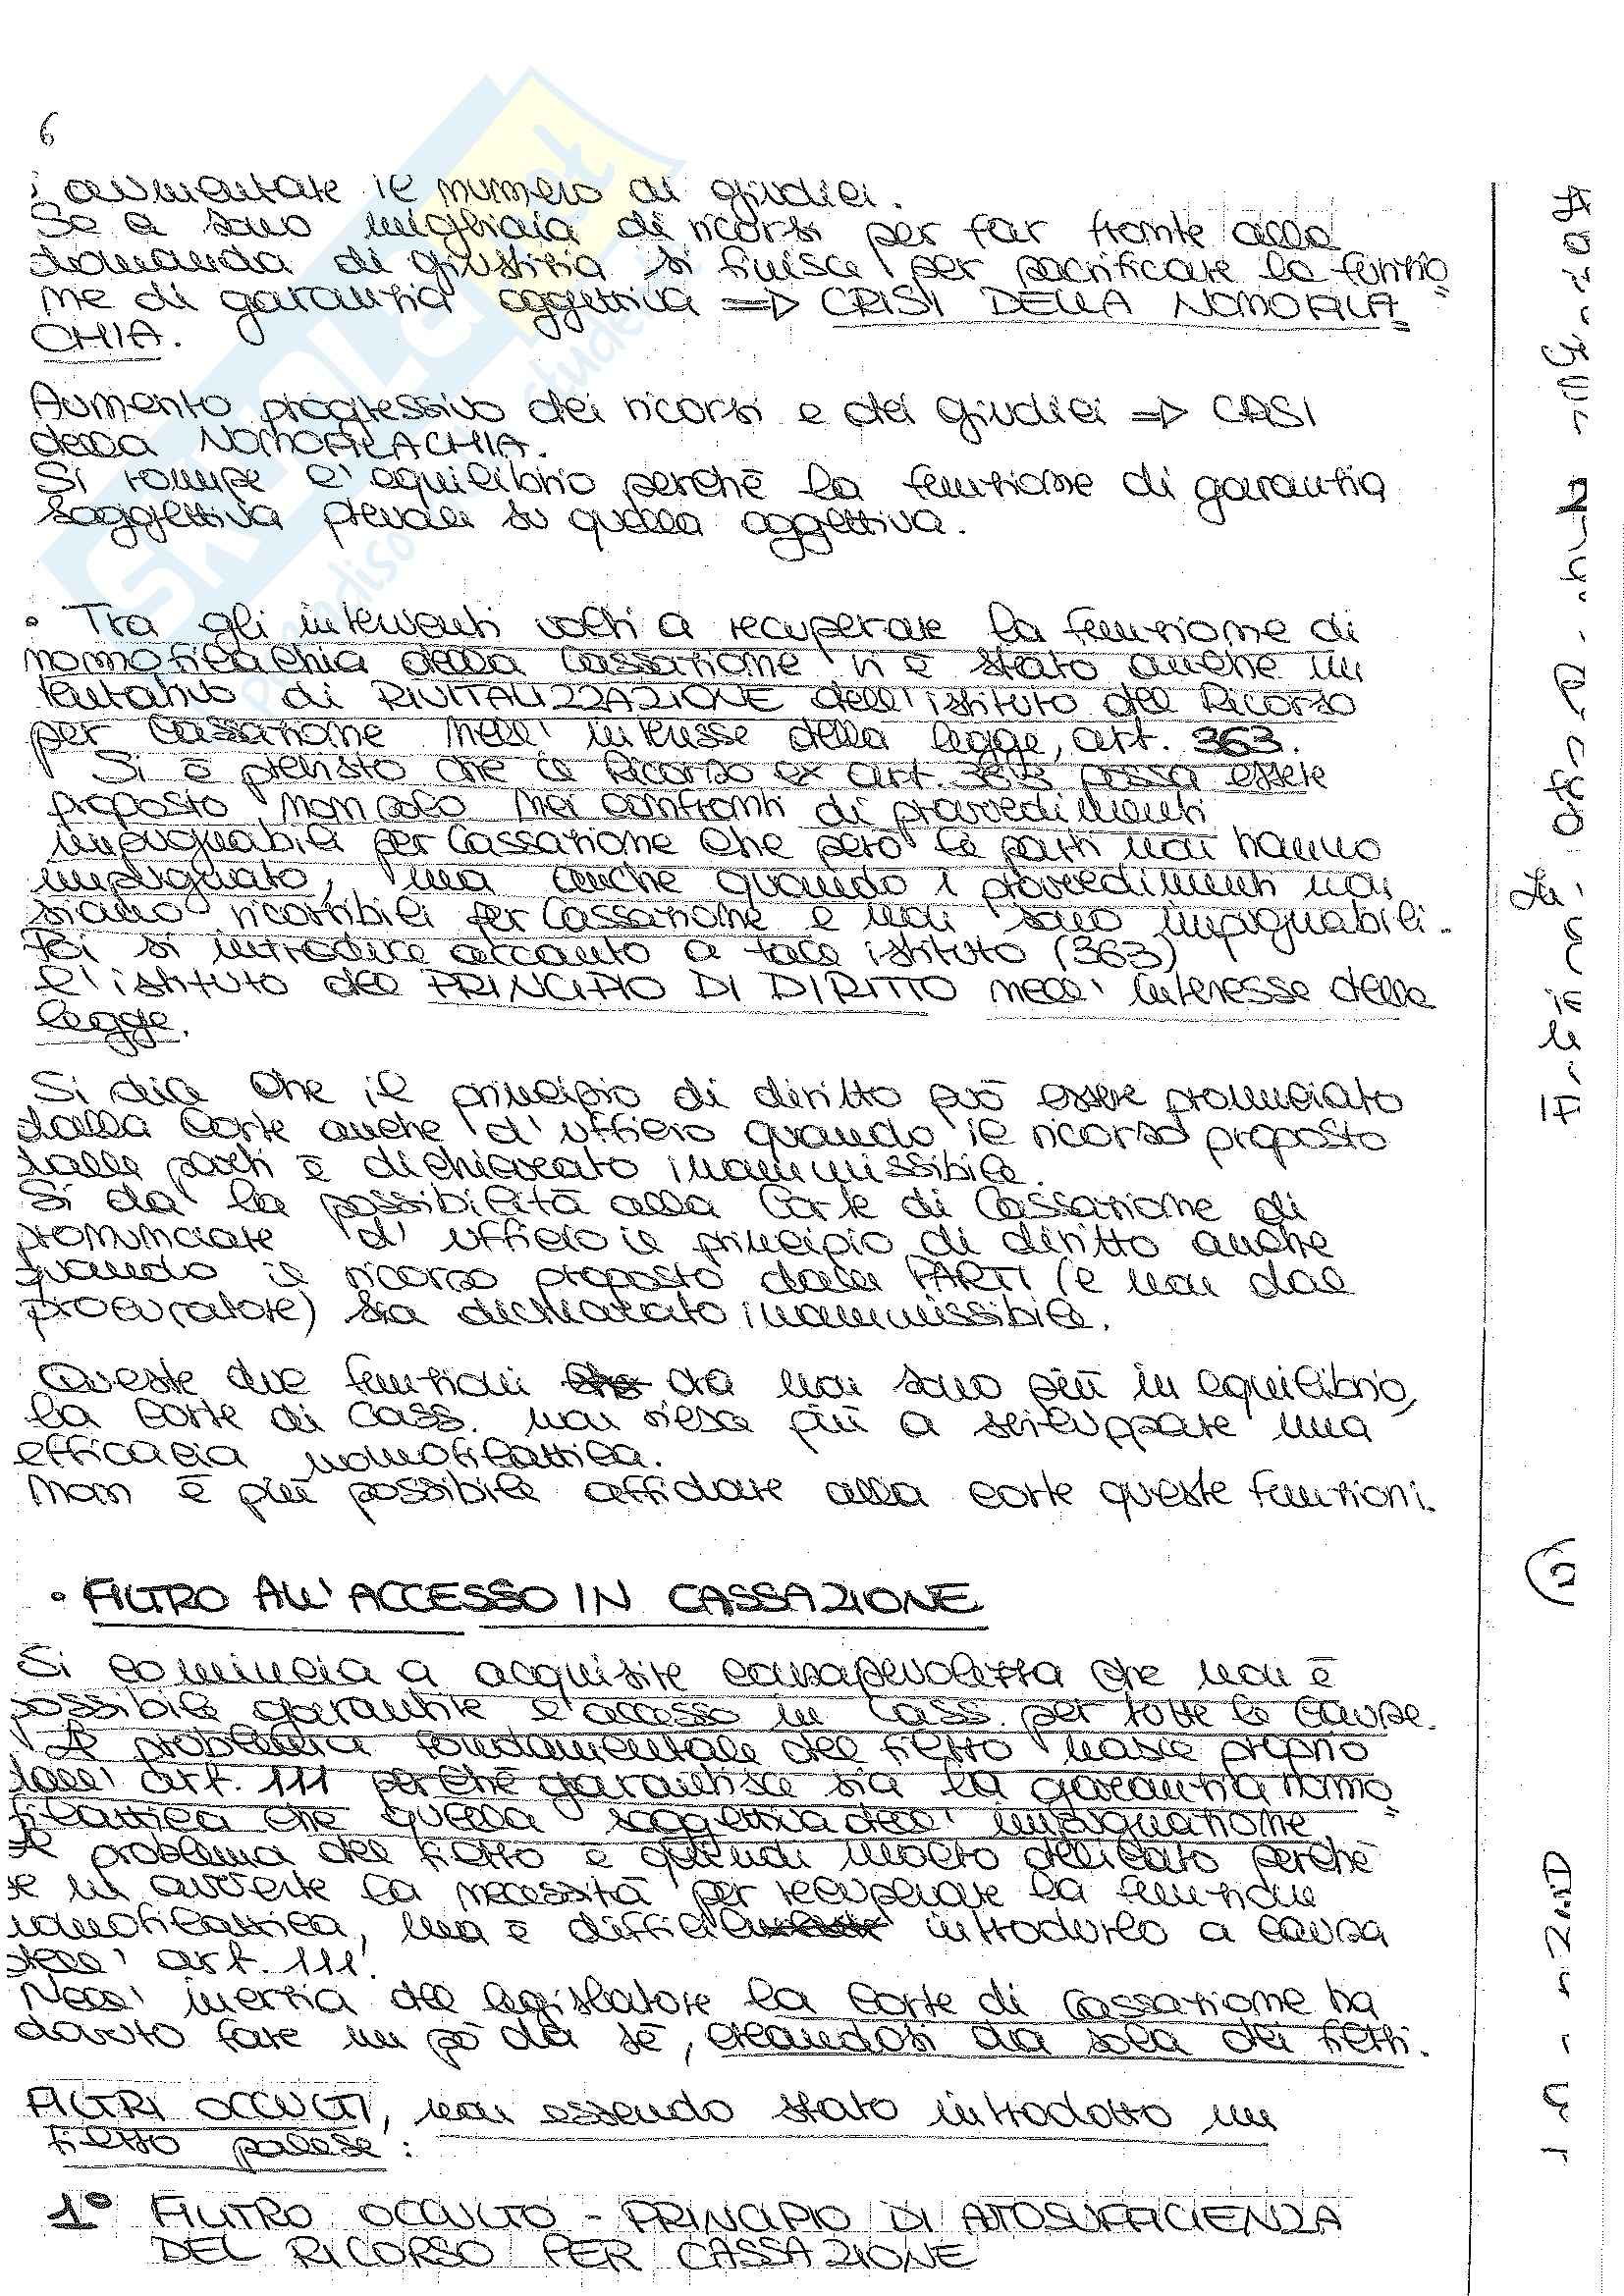 6
aumentare il numero di giudici.
Se ci sono migliaia di ricorsi per far fronte alla
domanda di giustizia si finisce per sacrificare la funzio
ne di garanzia oggettiva => CRISI DELLA NOMOFILA
CHIA.
Aumento progressivo dei ricorsi e dei giudici => CRISI
della NOMOFILACHIA.
Si rompe l'equilibrio perchè la funzione di garanzia
soggettiva prevale su quella oggettiva.
• Tra gli interventi volti a recuperare la funzione di
nomofilachia della Cassazione vi è stato anche un
tentativo di RIVITALIZZAZIONE dell'istituto del Ricorso
per Cassazione nell'interesse della legge, art. 363.
Si è previsto che il Ricorso ex art. 363 possa essere
proposto non solo nei confronti di provvedimenti
impugnabili per Cassazione che però le parti non hanno
impugnato, ma anche quando i provvedimenti non
siano ricorribili per Cassazione e non sono impugnabili.
Poi si introduce accanto a tale istituto (363)
l'istituto del PRINCIPIO DI DIRITTO nell'interesse della
legge.
Si dice che il principio di diritto può essere pronunciato
dalla Corte anche d'ufficio quando il ricorso proposto
dalle parti è dichiarato inammissibile.
Si da' la possibilità alla Corte di Cassazione di
pronunciare d'ufficio il principio di diritto anche
quando il ricorso proposto dalle PARTI (e non dal
procuratore) sia dichiarato inammissibile.
Queste due funzioni ora non sono più in equilibrio,
la Corte di Cass. non riesce più a sviluppare una
efficacia nomofilattica.
Non è più possibile affidare alla corte queste funzioni.
• FILTRO ALL'ACCESSO IN CASSAZIONE
Si comincia a acquisire consapevolezza che non è
possibile garantire l'accesso in Cass. per tutte le cause.
Il problema fondamentale del filtro nasce proprio
dall'art. 111 perchè garantisce sia la garanzia nomo
filattica che quella soggettiva dell'impugnazione
Il problema del filtro è quindi molto delicato perchè
se ne avverte la necessità per recuperare la funzione
nomofilattica, ma è difficile introdurlo a causa
dell'art. 111.
Nell'inerzia del legislatore la Corte di Cassazione ha
dovuto fare un pò da sè, creandosi da sola dei filtri.
FILTRI OCCULTI, non essendo stato introdotto un
filtro palese:
1° FILTRO OCCULTO - PRINCIPIO DI AUTOSUFFICIENZA
DEL RICORSO PER CASSAZIONE